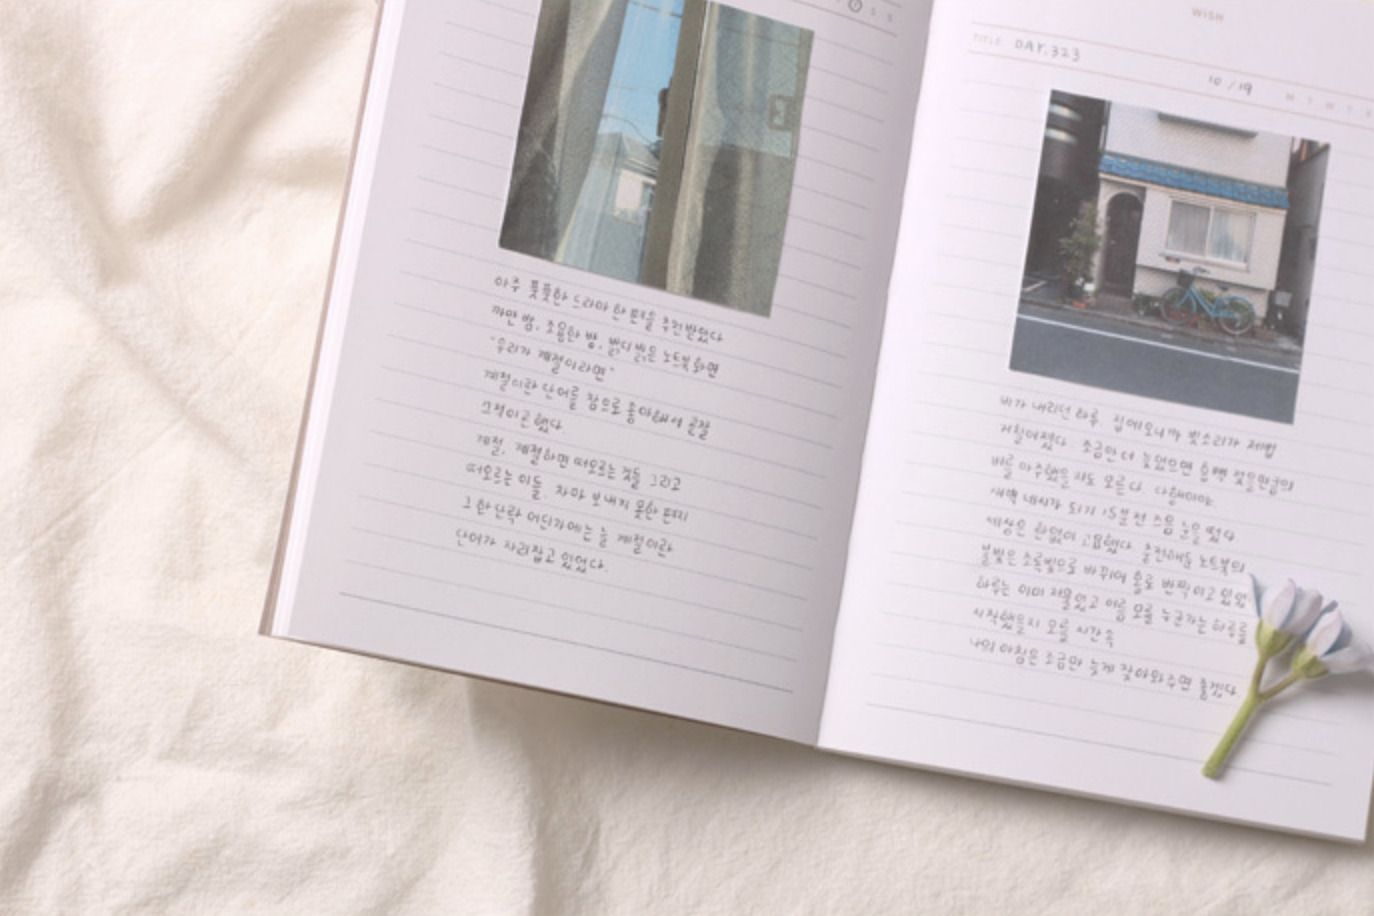 아주 풋풋한 드라마 한 편을 추천받았다
까만 밤, 조용한 밤, 밝디 밝은 노트북 화면
"우리가 계절이라면"
계절이란 단어를 참으로 좋아해서 곧잘
그적이곤 했다.
계절, 계절하면 떠오르는 것들 그리고
떠오르는 이들, 차마 보내지 못한 편지
그 한 단락 어딘가에는 늘 계절이란
단어가 자리잡고 있었다.
WISH
TITLE DAY.323
10 / 19
비가 내리던 하루, 집에 오니까 빗소리가 제법
거칠어졌다 조금만 더 늦었으면 흠뻑 젖을만큼의
비를 마주했을지도 모른다 다행이야
새벽 네시가 되기 15분 전 즈음 눈을 떴다
세상은 한없이 고요했다 충전해둔 노트북의
불빛은 초록빛으로 바뀌어 홀로 반짝이고 있었
하루는 이미 저물었고 이름 모를 누군가는 하루를
시작했을지 모를 시간 속
나의 아침은 조금만 늦게 찾아와주면 좋겠다.